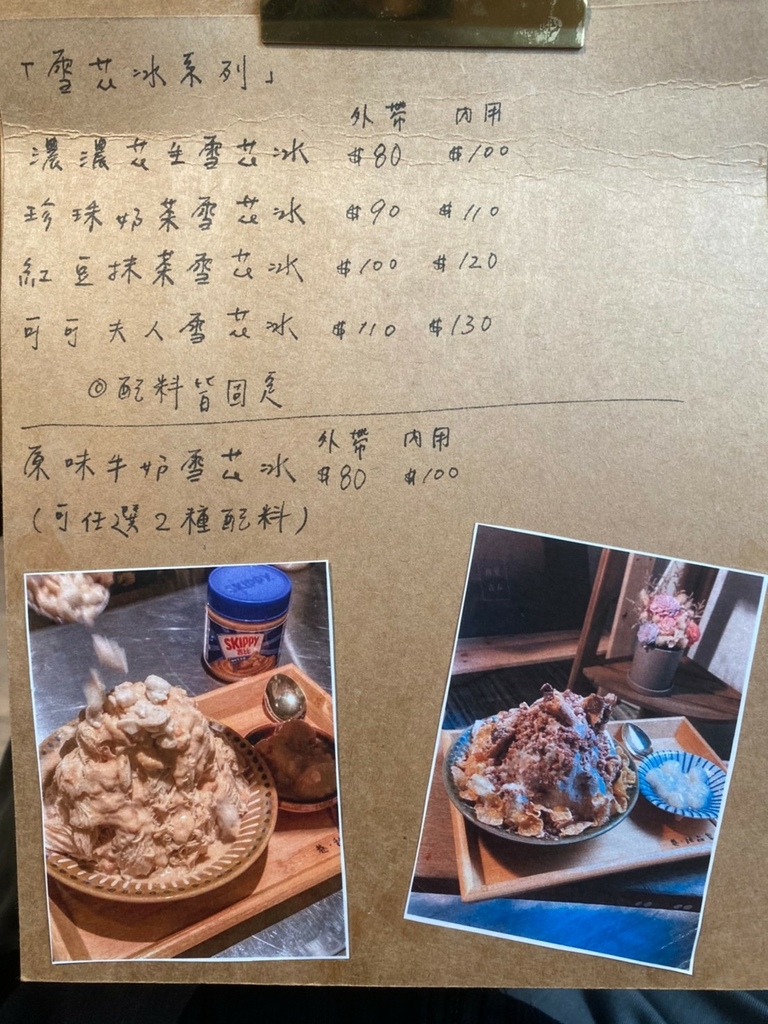 「雪花冰系列」
外帶 內用
濃濃花生雪花冰 $80 $100
珍珠奶茶雪花冰 $90 $110
紅豆抹茶雪花冰 $100 $120
可可夫人雪花冰 $110 $130
◎配料皆固定
外帶 內用
原味牛奶雪花冰 $80 $100
(可任選2種配料)
SKIPPY
SKIPPY